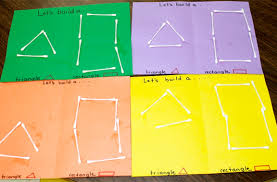 Let's build a...
triangle rectangle
Let's build a...
triangle rectangle
Let's build a...
triangle rectangle
Let's build a...
triangle rectangle